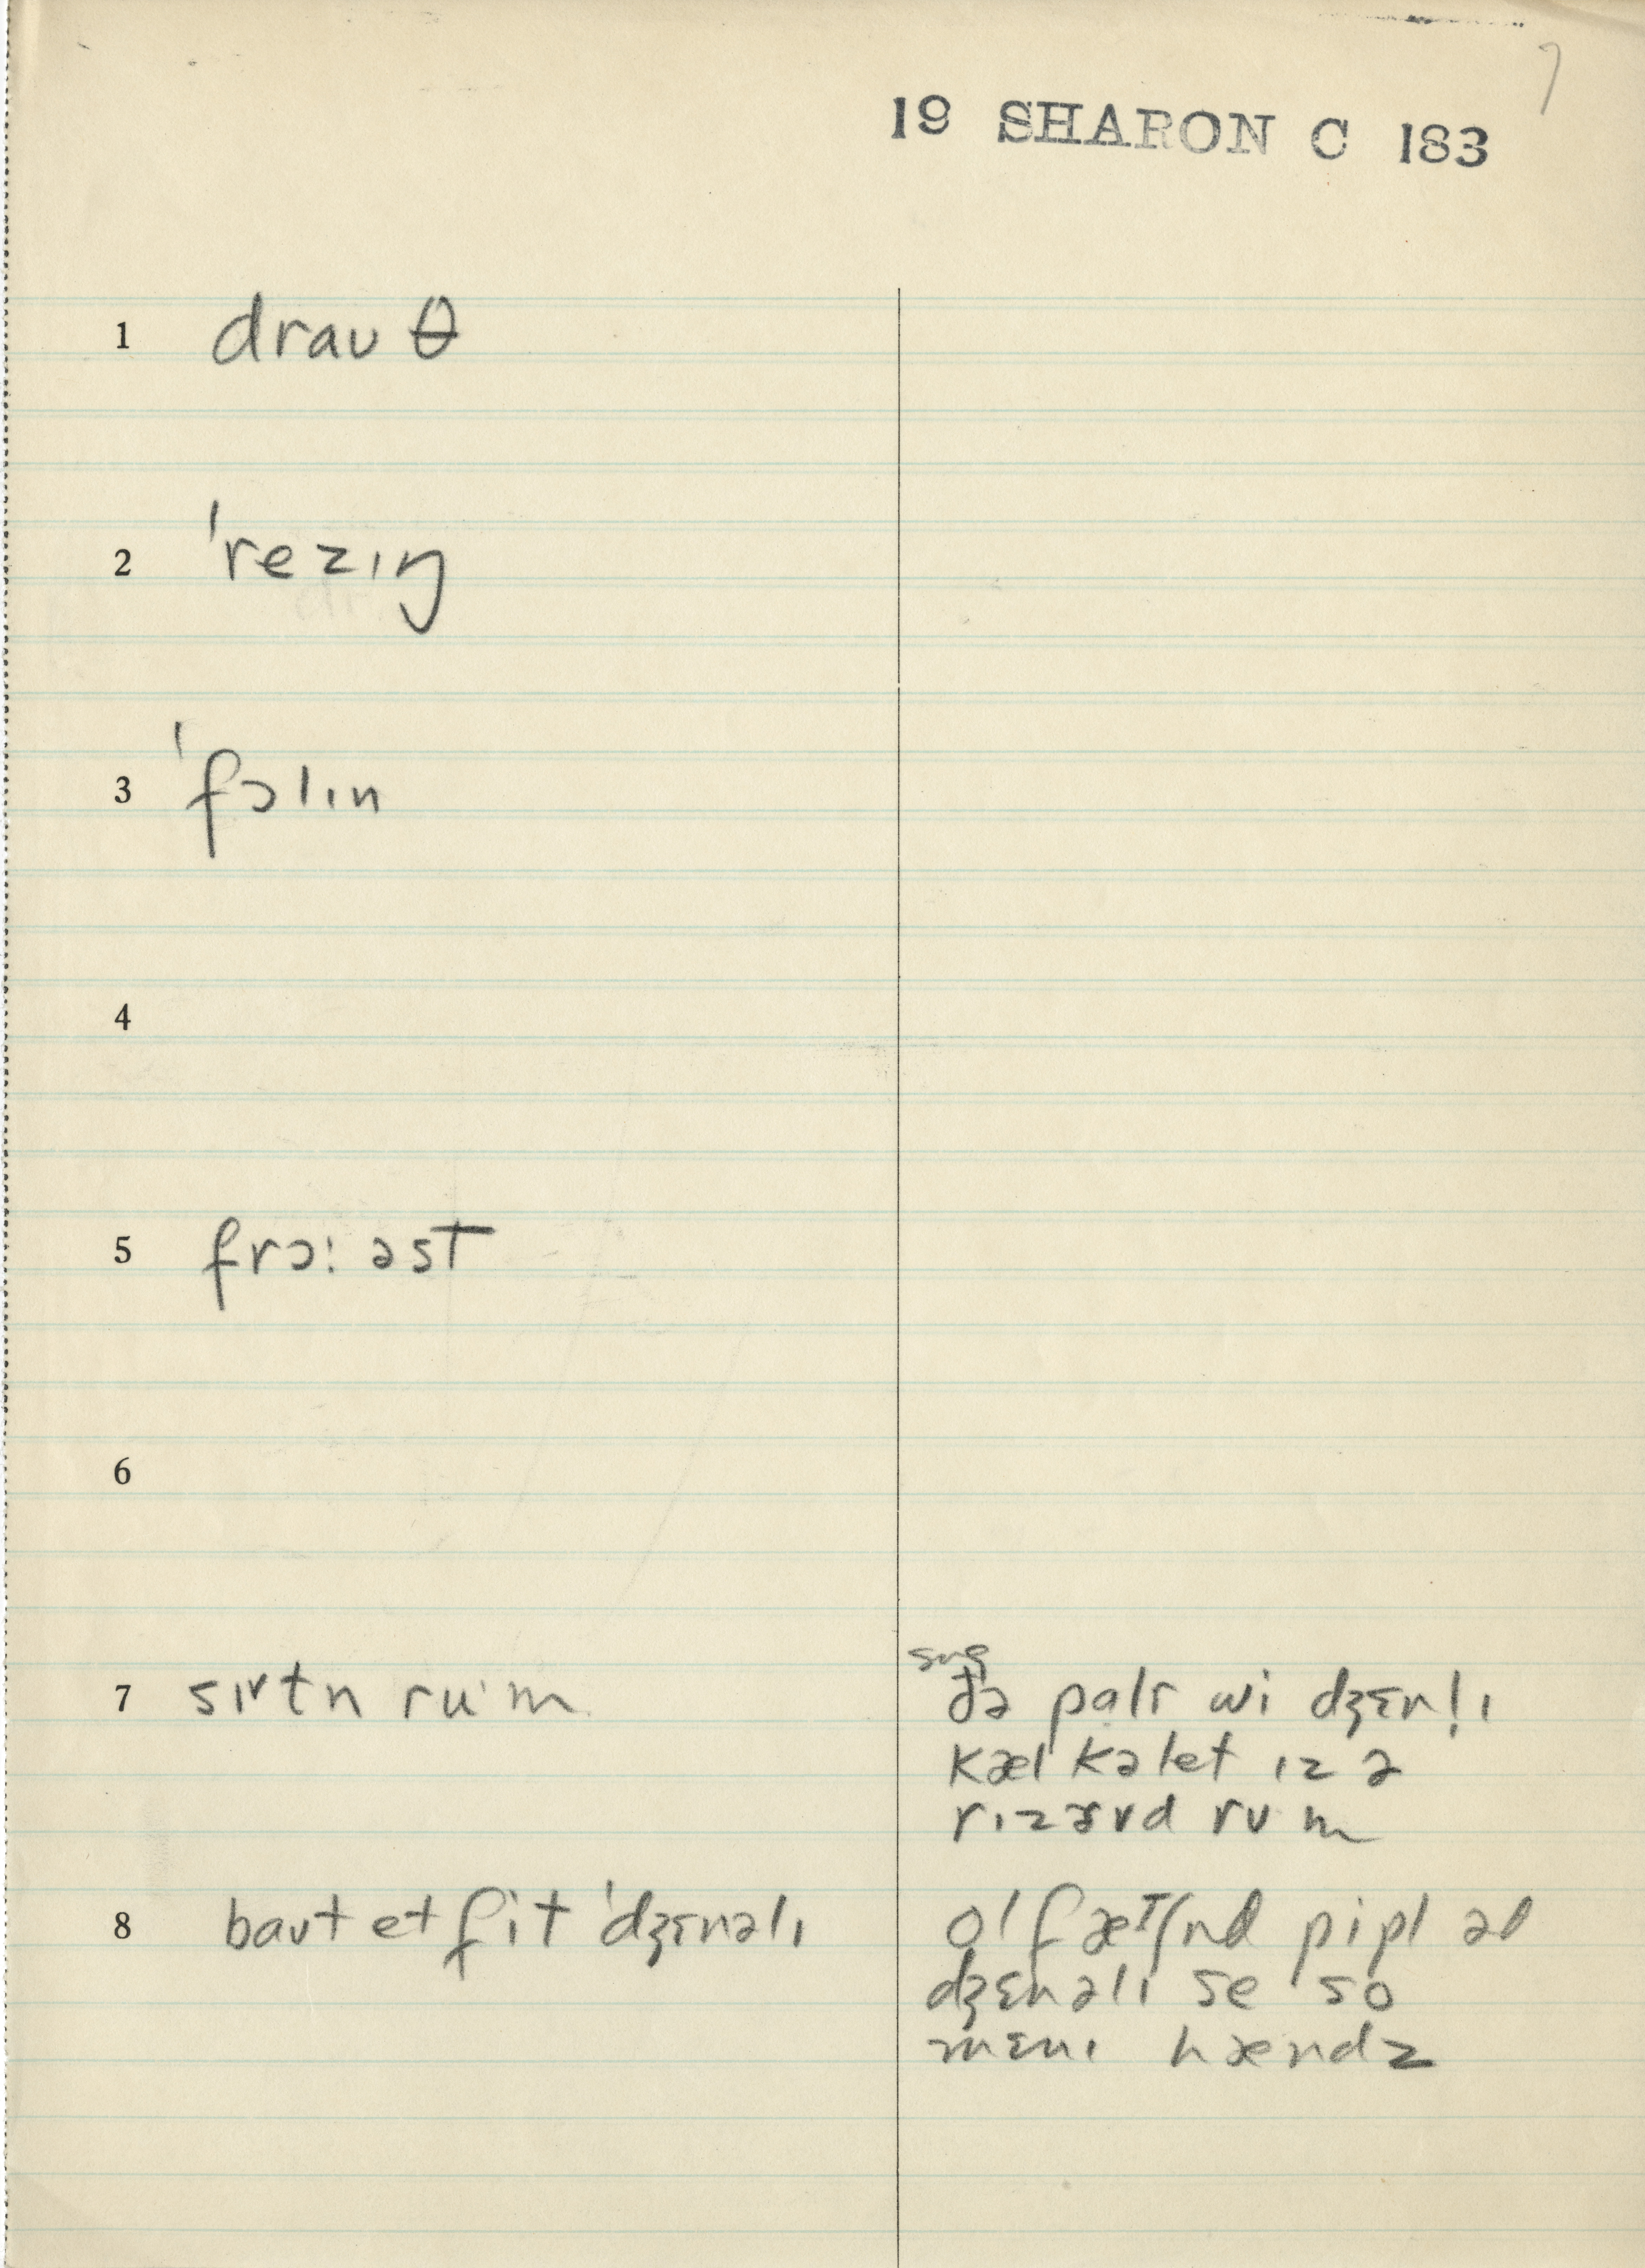 7
19 SHARON C 183
1 draʊθ
2 ˈrezɪŋ
3 ˈfɔlɪn
4
5 frɔ: əst
6
7 sɪʌtn ru·m
sug
ðə palɾ wi dʒɛnl̩ɪ
kæl kəlet ɪz ə
rɪzɜvd rum
8 baʊt et fit ˈdʒɛnəlɪ
ol fæʃnd pipl əd
dʒɛnəlɪ se so
mɛnɪ hændz